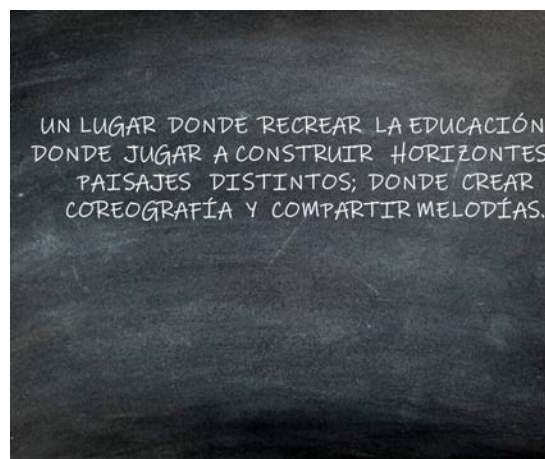 UN LUGAR DONDE RECREAR LA EDUCACIÓN
DONDE JUGAR A CONSTRUIR HORIZONTES
PAISAJES DISTINTOS; DONDE CREAR
COREOGRAFÍA Y COMPARTIR MELODÍAS.